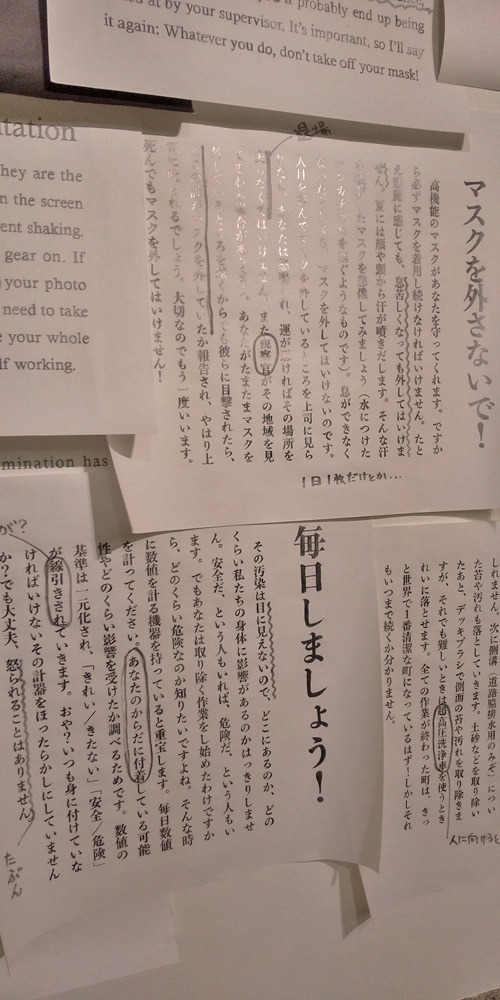 probably end up being
at by your supervisor. It's important, so I'll say
it again: Whatever you do, don't take off your mask!
tation
hey are the
n the screen
ent shaking.
gear on. If
your photo
need to take
e your whole
lf working.
mination has
マスクを外さないで！
高機能のマスクがあなたを守ってくれます。ですか
ら必ずマスクを着用し続けなければいけません。たと
え邪魔に感じても、息苦しくなっても外してはいけま
せん。夏には顔や頭から汗が噴きだします。そんな汗
たマスクを想像してみましょう（水につけた
ぐようなものです）。息ができなく
マスクを外してはいけないのです。
人目を
マスクを外しているところを上司に見ら
あなたは
れ、運が
ければその場所を
なくてはいけません。また視察官がその地域を見
あなたがたまたまマスクを
くから
彼らに目撃されたら、
スクを外していたか報告され、やはり上
れるでしょう。大切なのでもう一度いいます。
死んでもマスクを外してはいけません！
退場
1日1枚だけとか…
しれません。次に側溝（道路脇排水用のみぞ）につい
た苔や汚れも落としていきます。土砂などを取り除い
たあと、デッキブラシで側面の苔や汚れを取り除きま
すが、それでも難しいときは超高圧洗浄車を使うとき
れいに落とせます。全ての作業が終わった町は、きっ
と世界で1番清潔な町になっているはず！しかしそれ
もいつまで続くか分かりません。
人に向けると
毎日しましょう！
その汚染は目に見えないので、どこにあるのか、どの
くらい私たちの身体に影響があるのかはっきりしませ
ん。安全だ、という人もいれば、危険だ、という人もい
ます。でもあなたは取り除く作業をし始めたわけですか
ら、どのくらい危険なのか知りたいですよね。そんな時
に数値を計る機器を持っていると重宝します。毎日数値
を計ってください。あなたのからだに付着している可能
性やどのくらい影響を受けたか調べるためです。数値の
基準は一元化され、「きれい／きたない」「安全／危険」
が線引きされていきます。おや？いつも身に付けていな
ければいけないその計器をほったらかしにしていません
か？でも大丈夫、怒られることはありません。
たぶん
が？